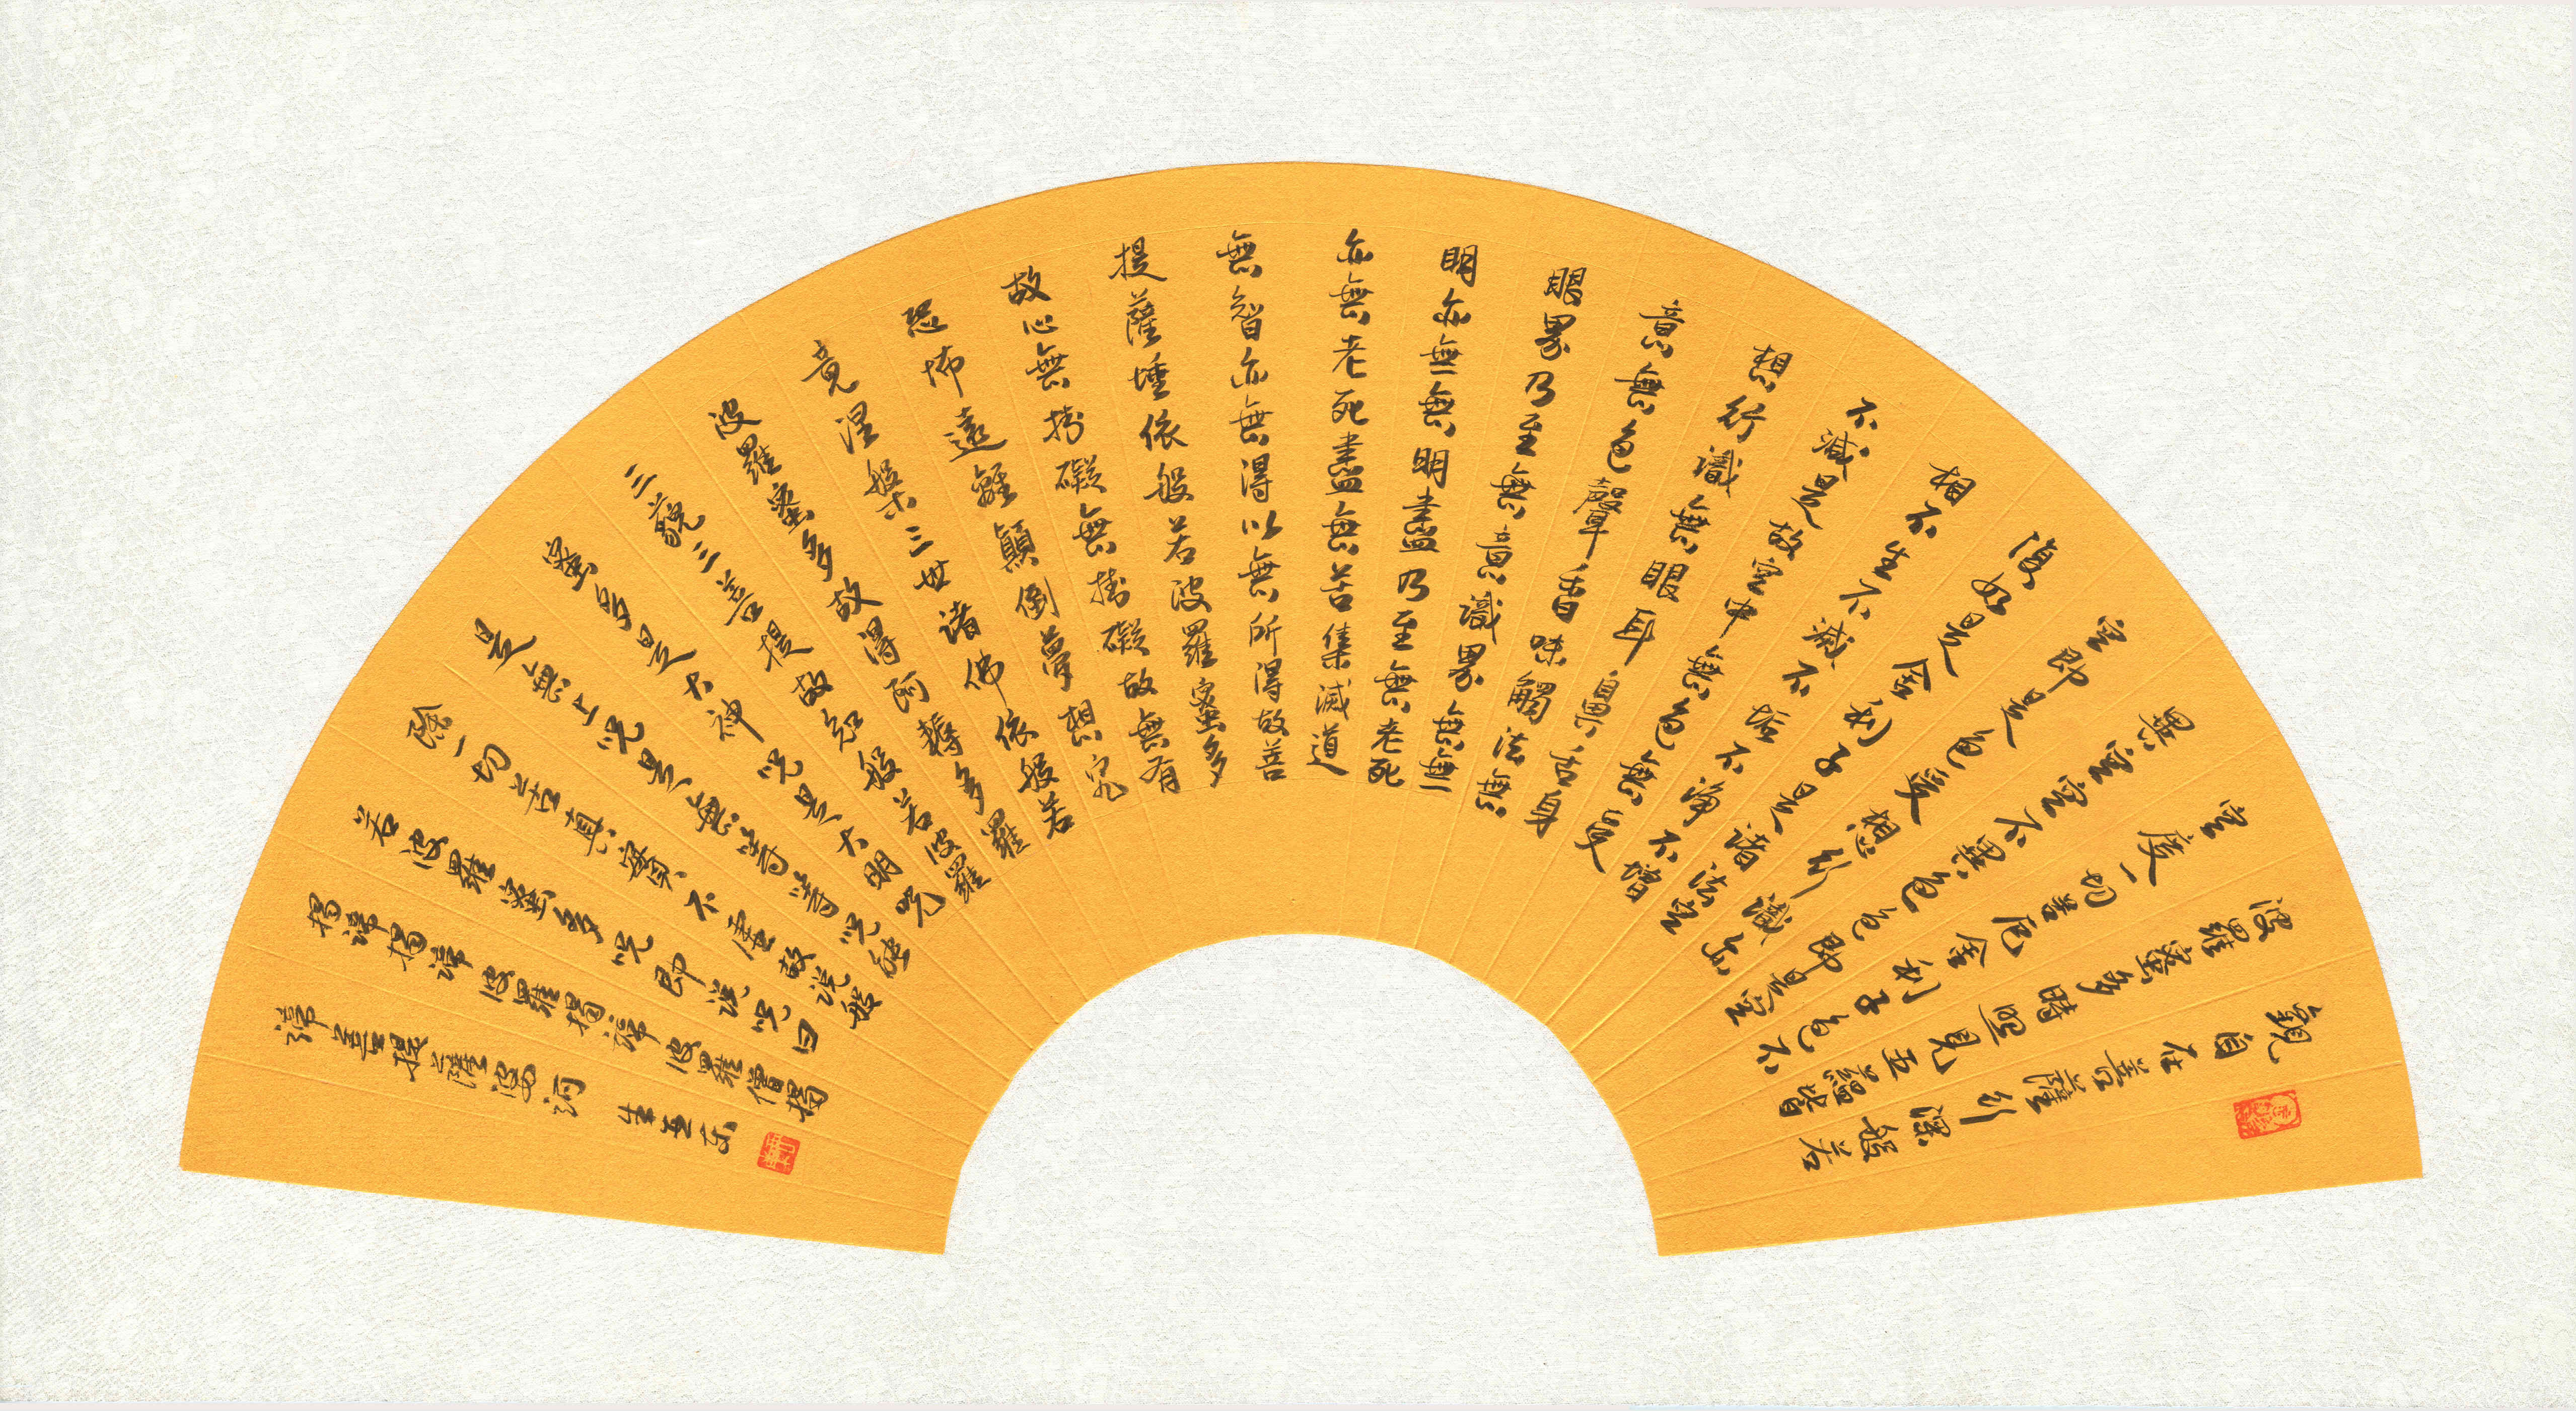 觀自在菩薩行深般若
波羅蜜多時照見五蘊皆
空度一切苦厄舍利子色不
異空空不異色色即是空
空即是色受想行識亦
復如是舍利子是諸法空
相不生不滅不垢不淨不增
不減是故空中無色無受
想行識無眼耳鼻舌身
意無色聲香味觸法無
眼界乃至無意識界無無
明亦無無明盡乃至無老死
亦無老死盡無苦集滅道
無智亦無得以無所得故菩
提薩埵依般若波羅蜜多
故心無掛礙無掛礙故無有
恐怖遠離顛倒夢想究
竟涅槃三世諸佛依般若
波羅蜜多故得阿耨多羅
三藐三菩提故知般若波羅
蜜多是大神咒是大明咒
是無上咒是無等等咒能
除一切苦真實不虛故說般
若波羅蜜多咒即說咒曰
揭諦揭諦波羅揭諦波羅僧揭
諦菩提薩婆訶